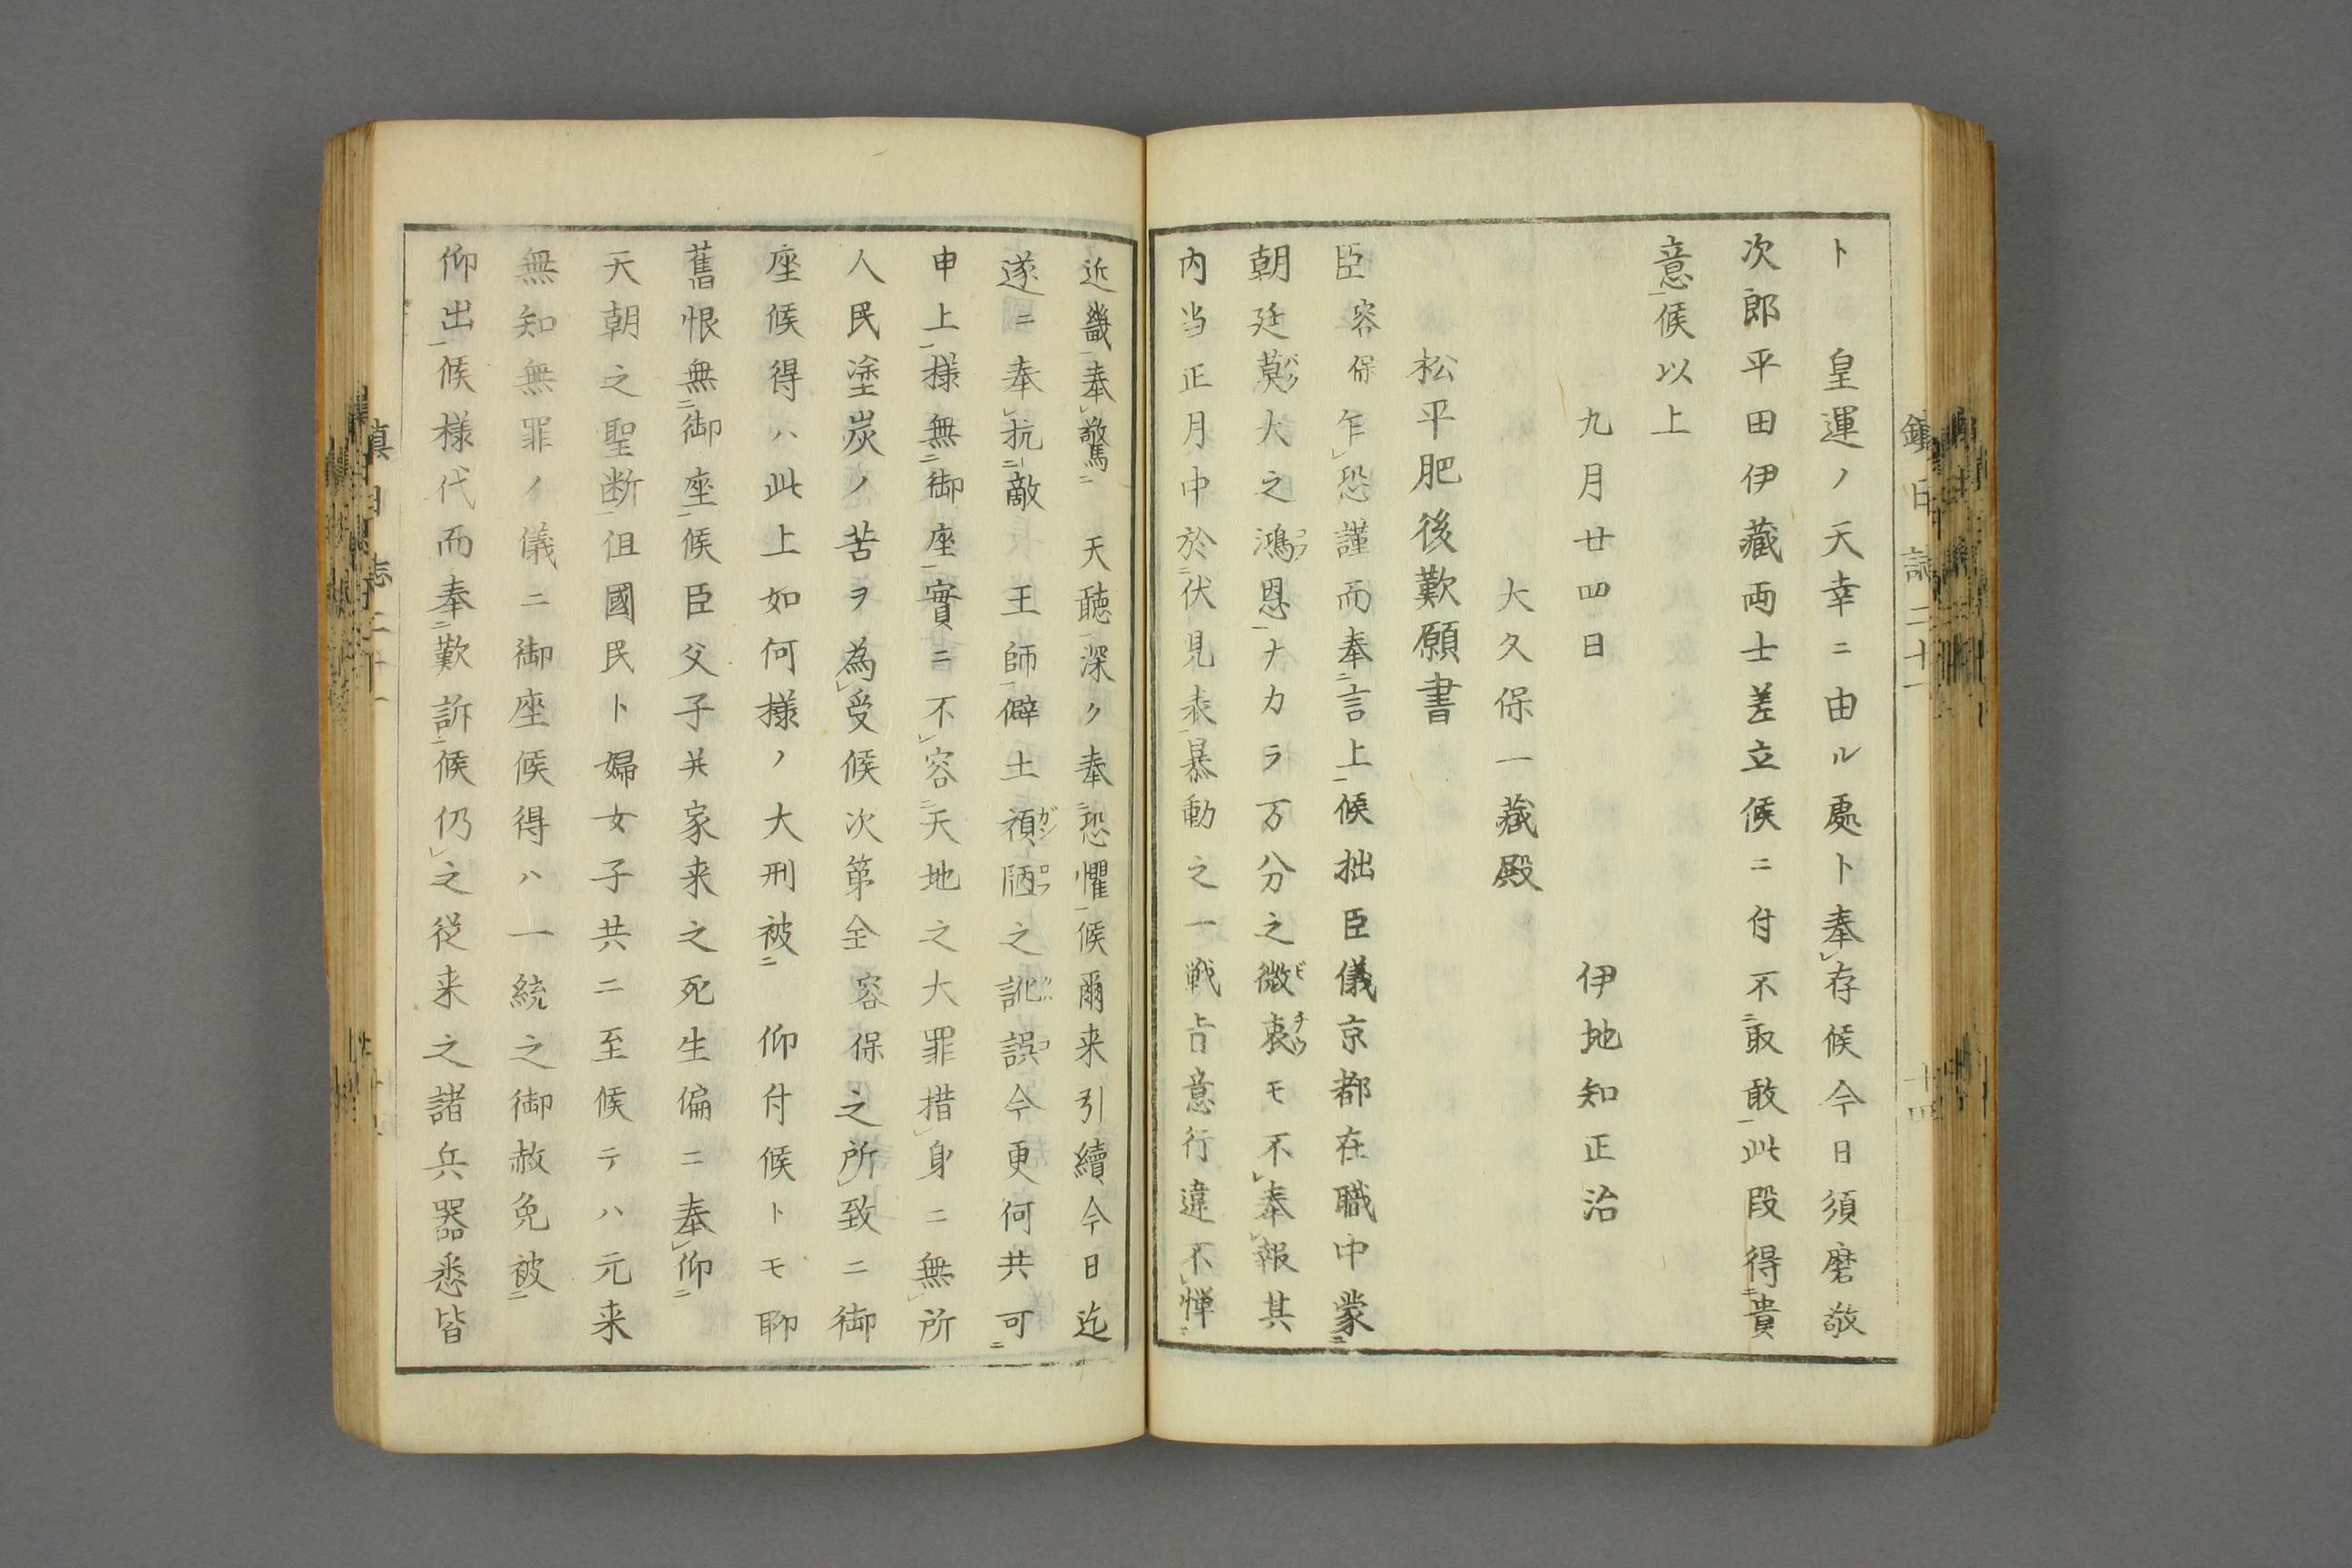 ト　皇運ノ天幸ニ由ル處ト奉㆑存候今日須磨敬
次郎平田伊藏両士差立候ニ付不㆓取敢㆒此段得㆓貴
意㆒候以上
九月廿四日　伊地知正治
大久保一藏殿
松平肥後歎願書
臣容保乍㆑恐謹而奉㆓言上㆒候拙臣儀京都在職中蒙㆓
朝廷莫バク大之鴻コウ恩㆒ナカラ万分之微ビ衷チウモ不㆑奉㆑報其
内当正月中於㆓伏見表㆒暴動之一戦㫖意行違不㆑憚㆓
近畿㆒奉㆑驚㆓　天聴㆒深ク奉㆓恐懼㆒候爾来引續今日迄
遂ニ奉㆑抗㆓敵　王師㆒僻土頑ガン陋ロウ之訛誤今更何共可㆓
申上㆒様無㆓御座㆒實ニ不㆑容㆓天地之大罪措㆑身ニ無㆑所
人民塗炭ノ苦ヲ為㆑受候次第全容保之所㆑致ニ御
座候得ハ此上如何様ノ大刑被㆓　仰付候トモ聊
舊恨無㆓御座㆒候臣父子共家来之死生偏ニ奉㆑仰㆓
天朝之聖断㆒伹國民ト婦女子共ニ至候テハ元来
無知無罪ノ儀ニ御座候得ハ一統之御赦免被㆓
仰出㆒候様代而奉㆓歎訴㆒候仍㆑之従来之諸兵器悉皆